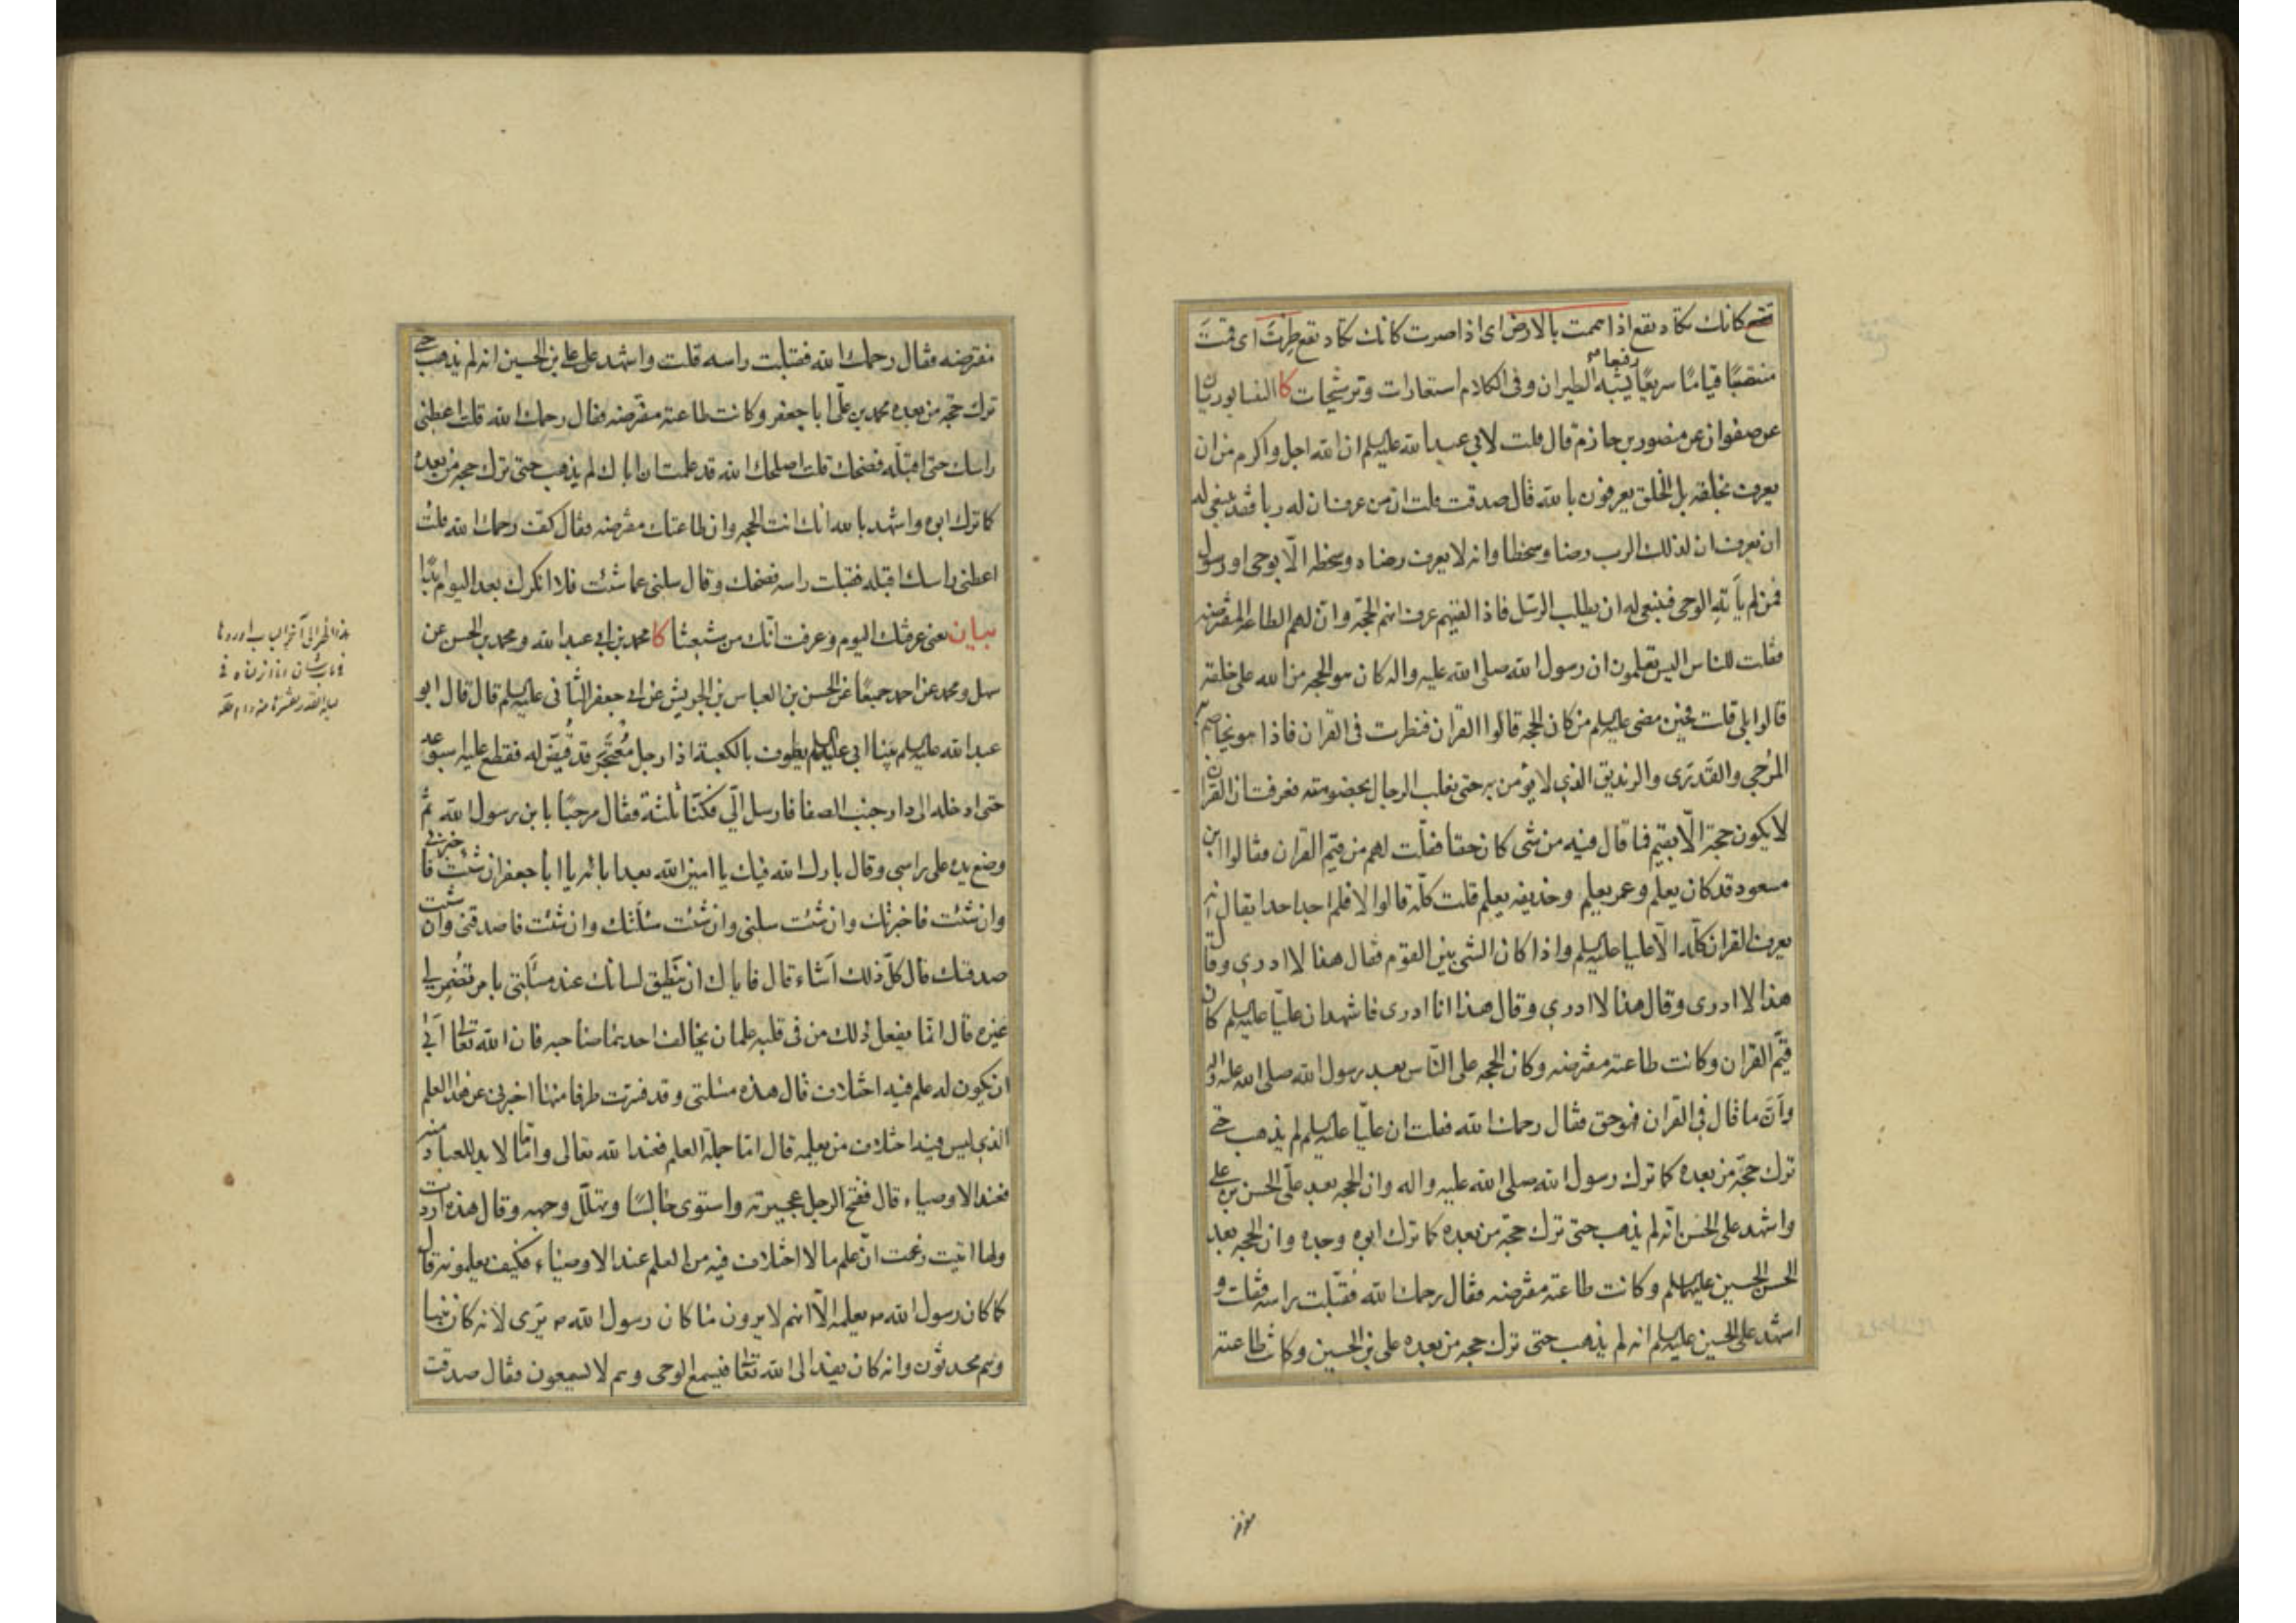 كانك تكاد تقع اذا صممت بالارض اى اذا صرت كانك تكاد تقع طرت اى قمت
منتصبًا قياما سريعًا رفيعا يشبه الطيران وفى الكلام استعارات وترشيحات كا النيسابوريان
عن صفوان عن منصور بن حازم قال قلت لابى عبد الله عليه السلم ان الله اجل واكرم من ان
يعرف بخلقه بل الخلق يعرفون بالله قال صدقت قلت ان من عرف ان له ربا فقد ينبغى له
ان يعرف ان لذلك الرب رضا وسخطا وانه لا يعرف رضاه وسخطه الّا بوحى او رسول
فمن لم ياته الوحى فينبغى له ان يطلب الرسل فاذا لقيهم عرف انهم الحجّة وانّ لهم الطاعة المفترضه
فقلت للناس اليس تعلمون ان رسول الله صلى الله عليه واله كان هو الحجه من الله على خلقه
قالوا بلى قلت فحين مضى عليه السلم من كان الحجه قالوا القران فنظرت فى القران فاذا هو يخاصم به
المرجى والقدرى والزنديق الذي لا يؤمن به حتى يغلب الرجال بخصومته فعرفت ان القران
لا يكون حجة الّا بقيم فما قال فيه من شى كان حقا فقلت لهم من قيّم القران فقالوا ابن
مسعود قد كان يعلم وعمر يعلم وحذيفه يعلم قلت كلّه قالوا لا فلم اجد احدا يقال انه
يعرف القران كلّه الّا عليا عليه السلم واذا كان الشى بين القوم فقال هذا لا ادري وقال
هذا لا ادرى وقال هذا لا ادري وقال هذا انا ادرى فاشهد ان عليّا عليه السلم كان
قيّم القران وكانت طاعته مفترضه وكان الحجه على النّاس بعد رسول الله صلى الله عليه واله
وانّ ما قال فى القران فهو حق فقال رحمك الله فقلت ان عليّا عليه السلم لم يذهب حتى
ترك حجّة من بعده كما ترك رسول الله صلى الله عليه واله وان الحجه بعد علىّ الحسن بن على
واشهد على الحسن انّه لم يذهب حتى ترك حجّة من بعده كما ترك ابوه وجده وان الحجه بعد
الحسن الحسين عليهما السلم وكانت طاعته مفترضه فقال رحمك الله فقبّلت راسه فقلت و
اشهد على الحسين عليه السلم انه لم يذهب حتى ترك حجه من بعده على بن الحسين وكانت طاعته
مفترضه
مفترضه فقال رحمك الله فقبلت راسه قلت واشهد على على بن الحسين انه لم يذهب حتى
ترك حجّه من بعده محمد بن علىّ ابا جعفر وكانت طاعته مفترضه فقال رحمك الله قلت اعطنى
راسك حتى اقبّله فضحك قلت اصلحك الله قد علمت ان اباك لم يذهب حتى ترك حجه من بعده
كما ترك ابوه واشهد بالله انك انت الحجه وان طاعتك مفترضه فقال كف رحمك الله قلت
اعطنى راسك اقبله فقبلت راسه فضحك وقال سلنى عما شئت فلا انكرك بعد اليوم ابدًا
بيان يعنى عرفتك اليوم وعرفت انّك من شيعتنا كا محمد بن ابى عبد الله ومحمد بن الحسن عن
سهل ومحمد عن احمد جميعًا عن الحسن بن العباس بن الحريش عن ابى جعفر الثانى عليه السلم قال قال ابو
عبد الله عليه السلم بينا ابى عليه السلم يطوف بالكعبة اذا رجل معتجر قد قيّض له فقطع عليه اسبوعه
حتى ادخله الى دار جنب الصفا فارسل الّى فكنّا ثلثة فقال مرحبًا بابن رسول الله ثم
وضع يده على راسى وقال بارك الله فيك يا امين الله بعد ابائه يا ابا جعفر ان شئت فاخبرنى
وان شئت فاخبرتك وان شئت سلنى وان شئت سئلتك وان شئت فاصدقنى وان شئت
صدقتك قال كلّ ذلك اشاء قال فاياك ان ينطق لسانك عند مسئلتى بامر تضمر لى
غيره قال انّما يفعل ذلك من فى قلبه علمان يخالف احدهما صاحبه فان الله تعالى ابى
ان يكون له علم فيه اختلاف قال هذه مسئلتى وقد فسّرت طرفا منها اخبرنى عن هذا العلم
الذى ليس فيه اختلاف من يعلمه قال امّا جملة العلم فعند الله تعالى وامّا ما لا بد للعباد منه
فعند الاوصياء قال ففتح الرجل عجيرته واستوى جالسًا وتهلّل وجهه وقال هذه اردت
ولها اتيت زعمت انّ علم ما لا اختلاف فيه من العلم عند الاوصياء فكيف يعلمونه قال
كما كان رسول الله ص يعلمه الّا انهم لا يرون ما كان رسول الله ص يرى لانه كان نبيا
وهم محدثون وانه كان يفد الى الله تعالى فيسمع الوحى وهم لا يسمعون فقال صدقت
هذا الخبر الى آخر الباب اوردنا